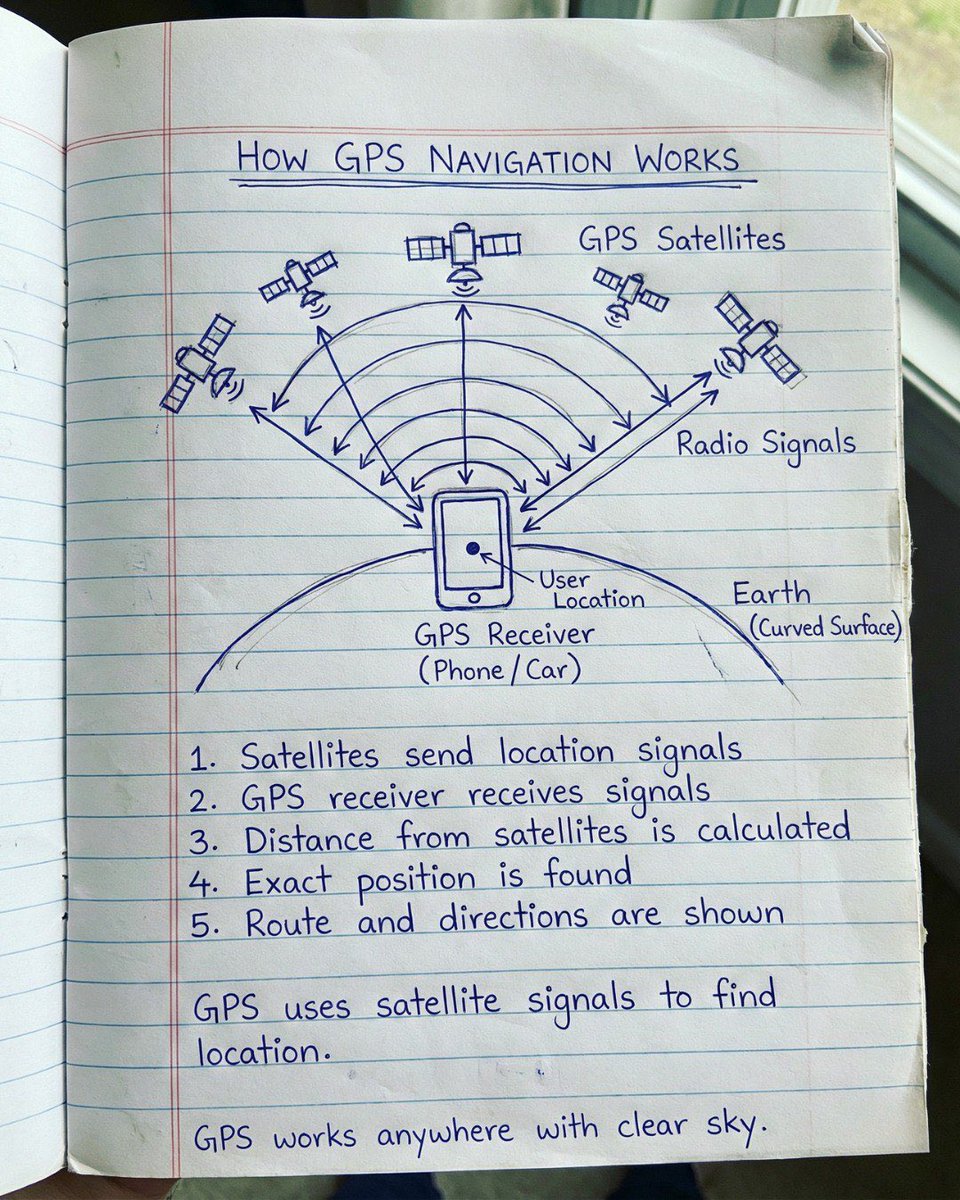 HOW GPS NAVIGATION WORKS
GPS Satellites
Radio Signals
User
Location
Earth
(Curved Surface)
GPS Receiver
(Phone/Car)
1. Satellites send location signals
2. GPS receiver receives signals
3. Distance from satellites is calculated
4. Exact position is found
5. Route and directions are shown
GPS uses satellite signals to find
location.
GPS works anywhere with clear sky.